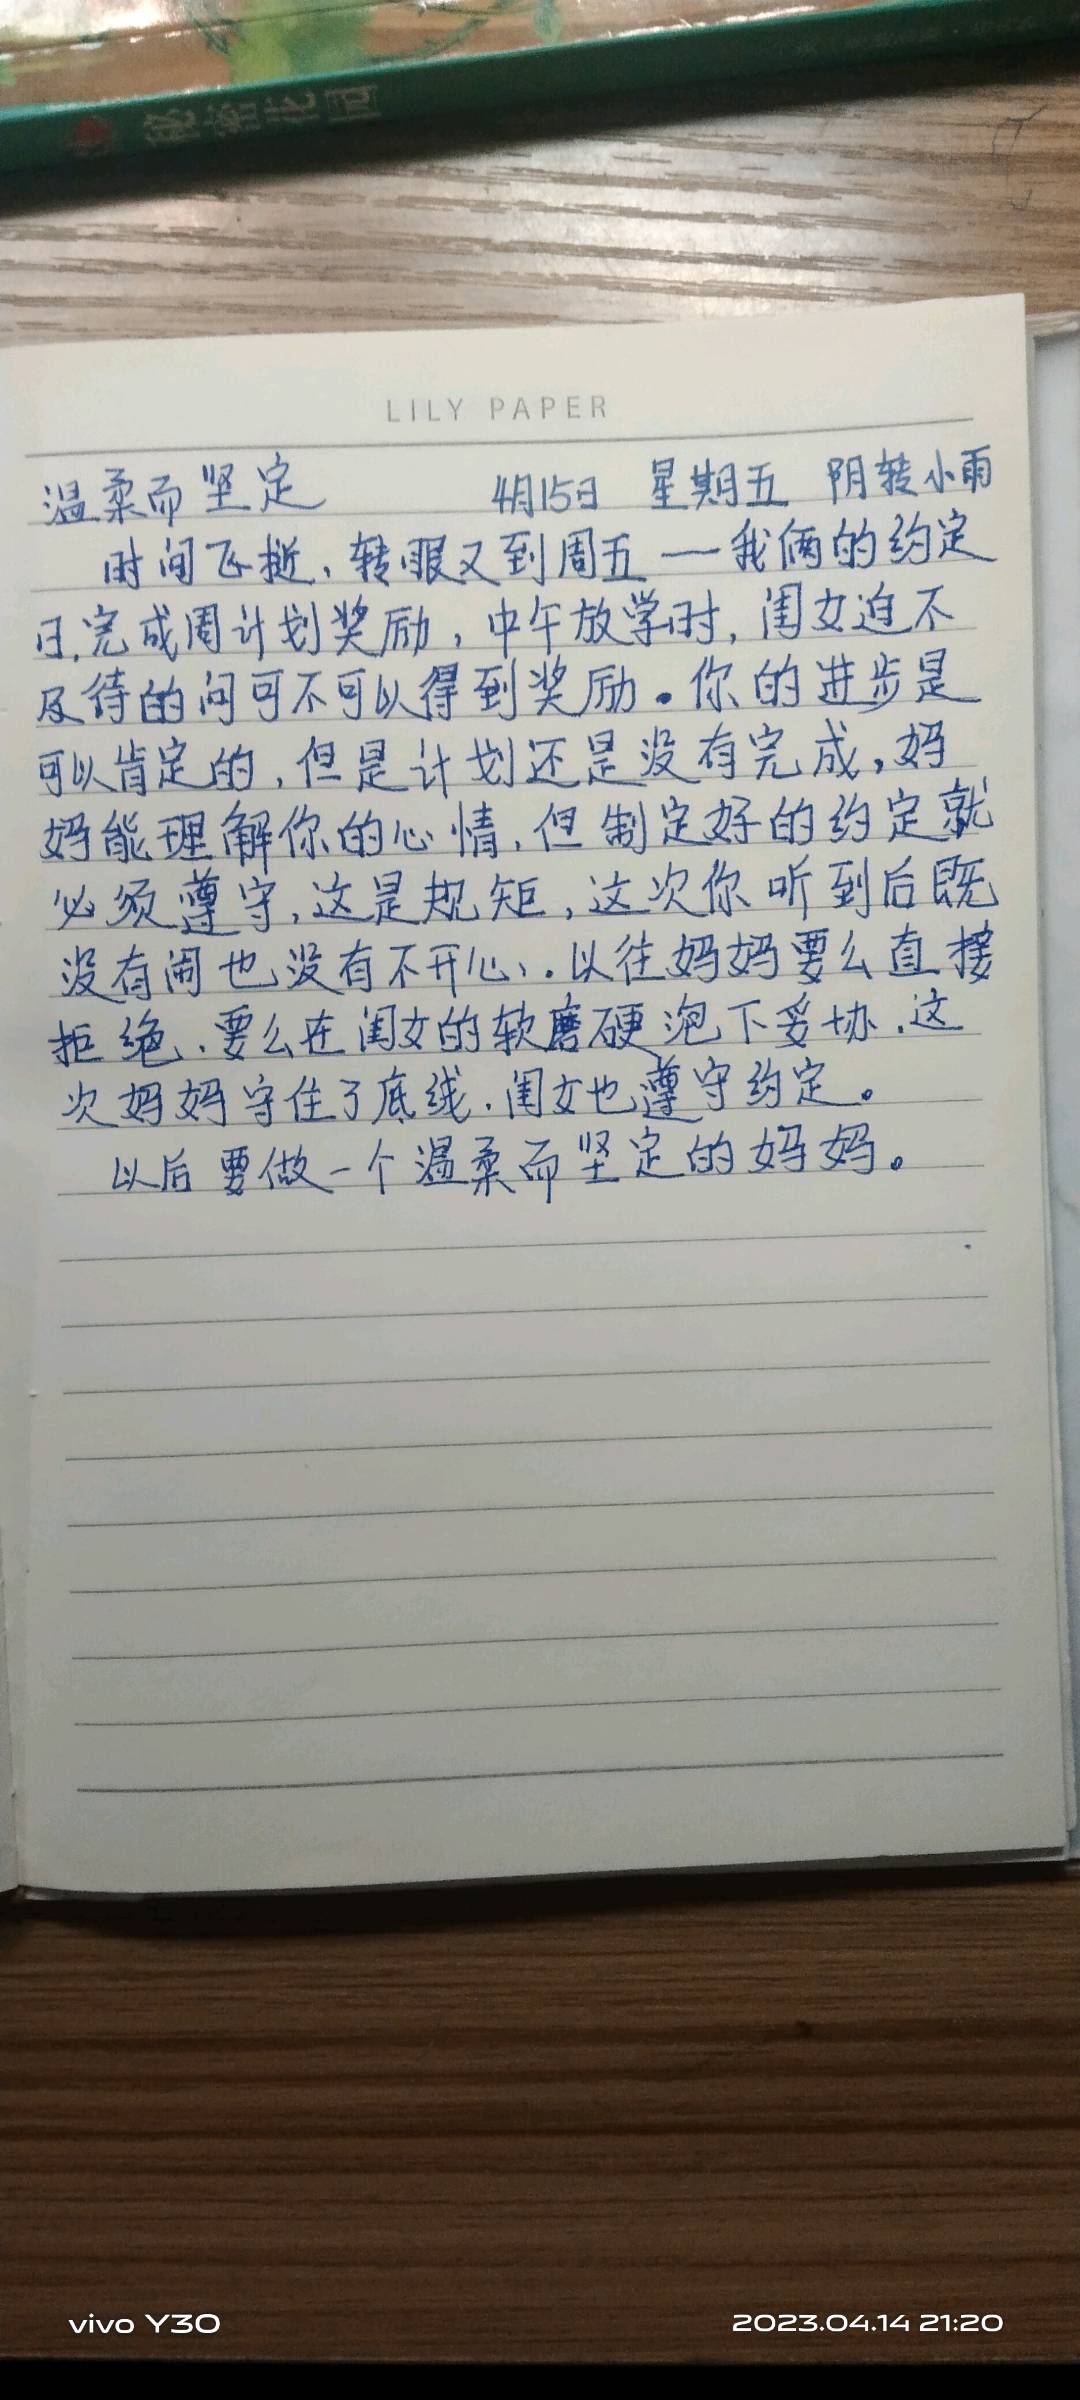 秘密花园
LILY PAPER
温柔而坚定 4月15日 星期五 阴转小雨
时间飞逝,转眼又到周五——我俩的约定
日,完成周计划奖励,中午放学时,闺女迫不
及待的问可不可以得到奖励。你的进步是
可以肯定的,但是计划还是没有完成,妈
妈能理解你的心情,但制定好的约定就
必须遵守,这是规矩,这次你听到后既
没有闹也没有不开心、.以往妈妈要么直接
拒绝、要么在闺女的软磨硬泡下妥协.这
次妈妈守住了底线.闺女也遵守约定。
以后要做一个温柔而坚定的妈妈。
vivo Y30 2023.04.14 21:20